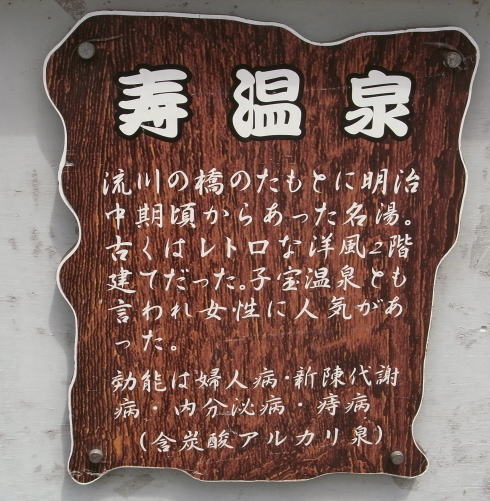 寿温泉
流川の橋のたもとに明治
中期頃からあった名湯。
古くはレトロな洋風2階
建てだった。子宝温泉とも
言われ女性に人気があ
った。
効能は婦人病・新陳代謝
病・内分泌病・痔病
(含炭酸アルカリ泉)